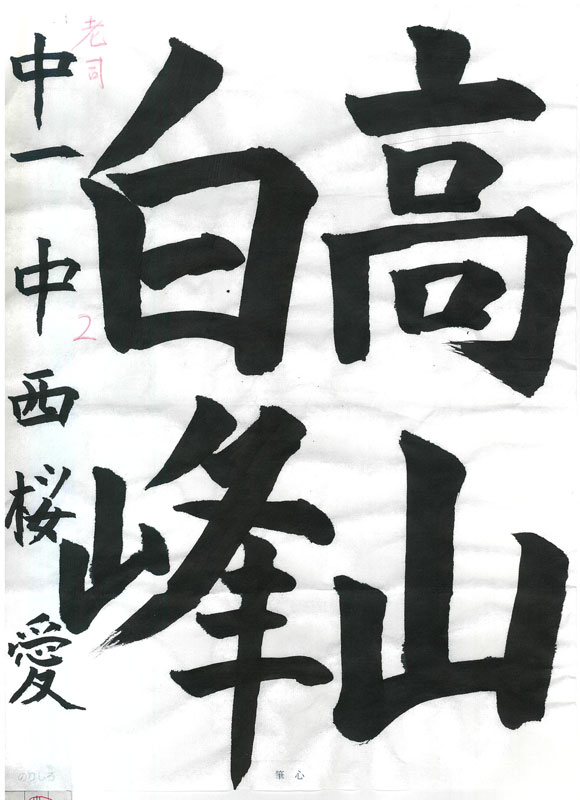 高山
白峰
中一 中西桜愛
老司
2
筆心
のりしろ